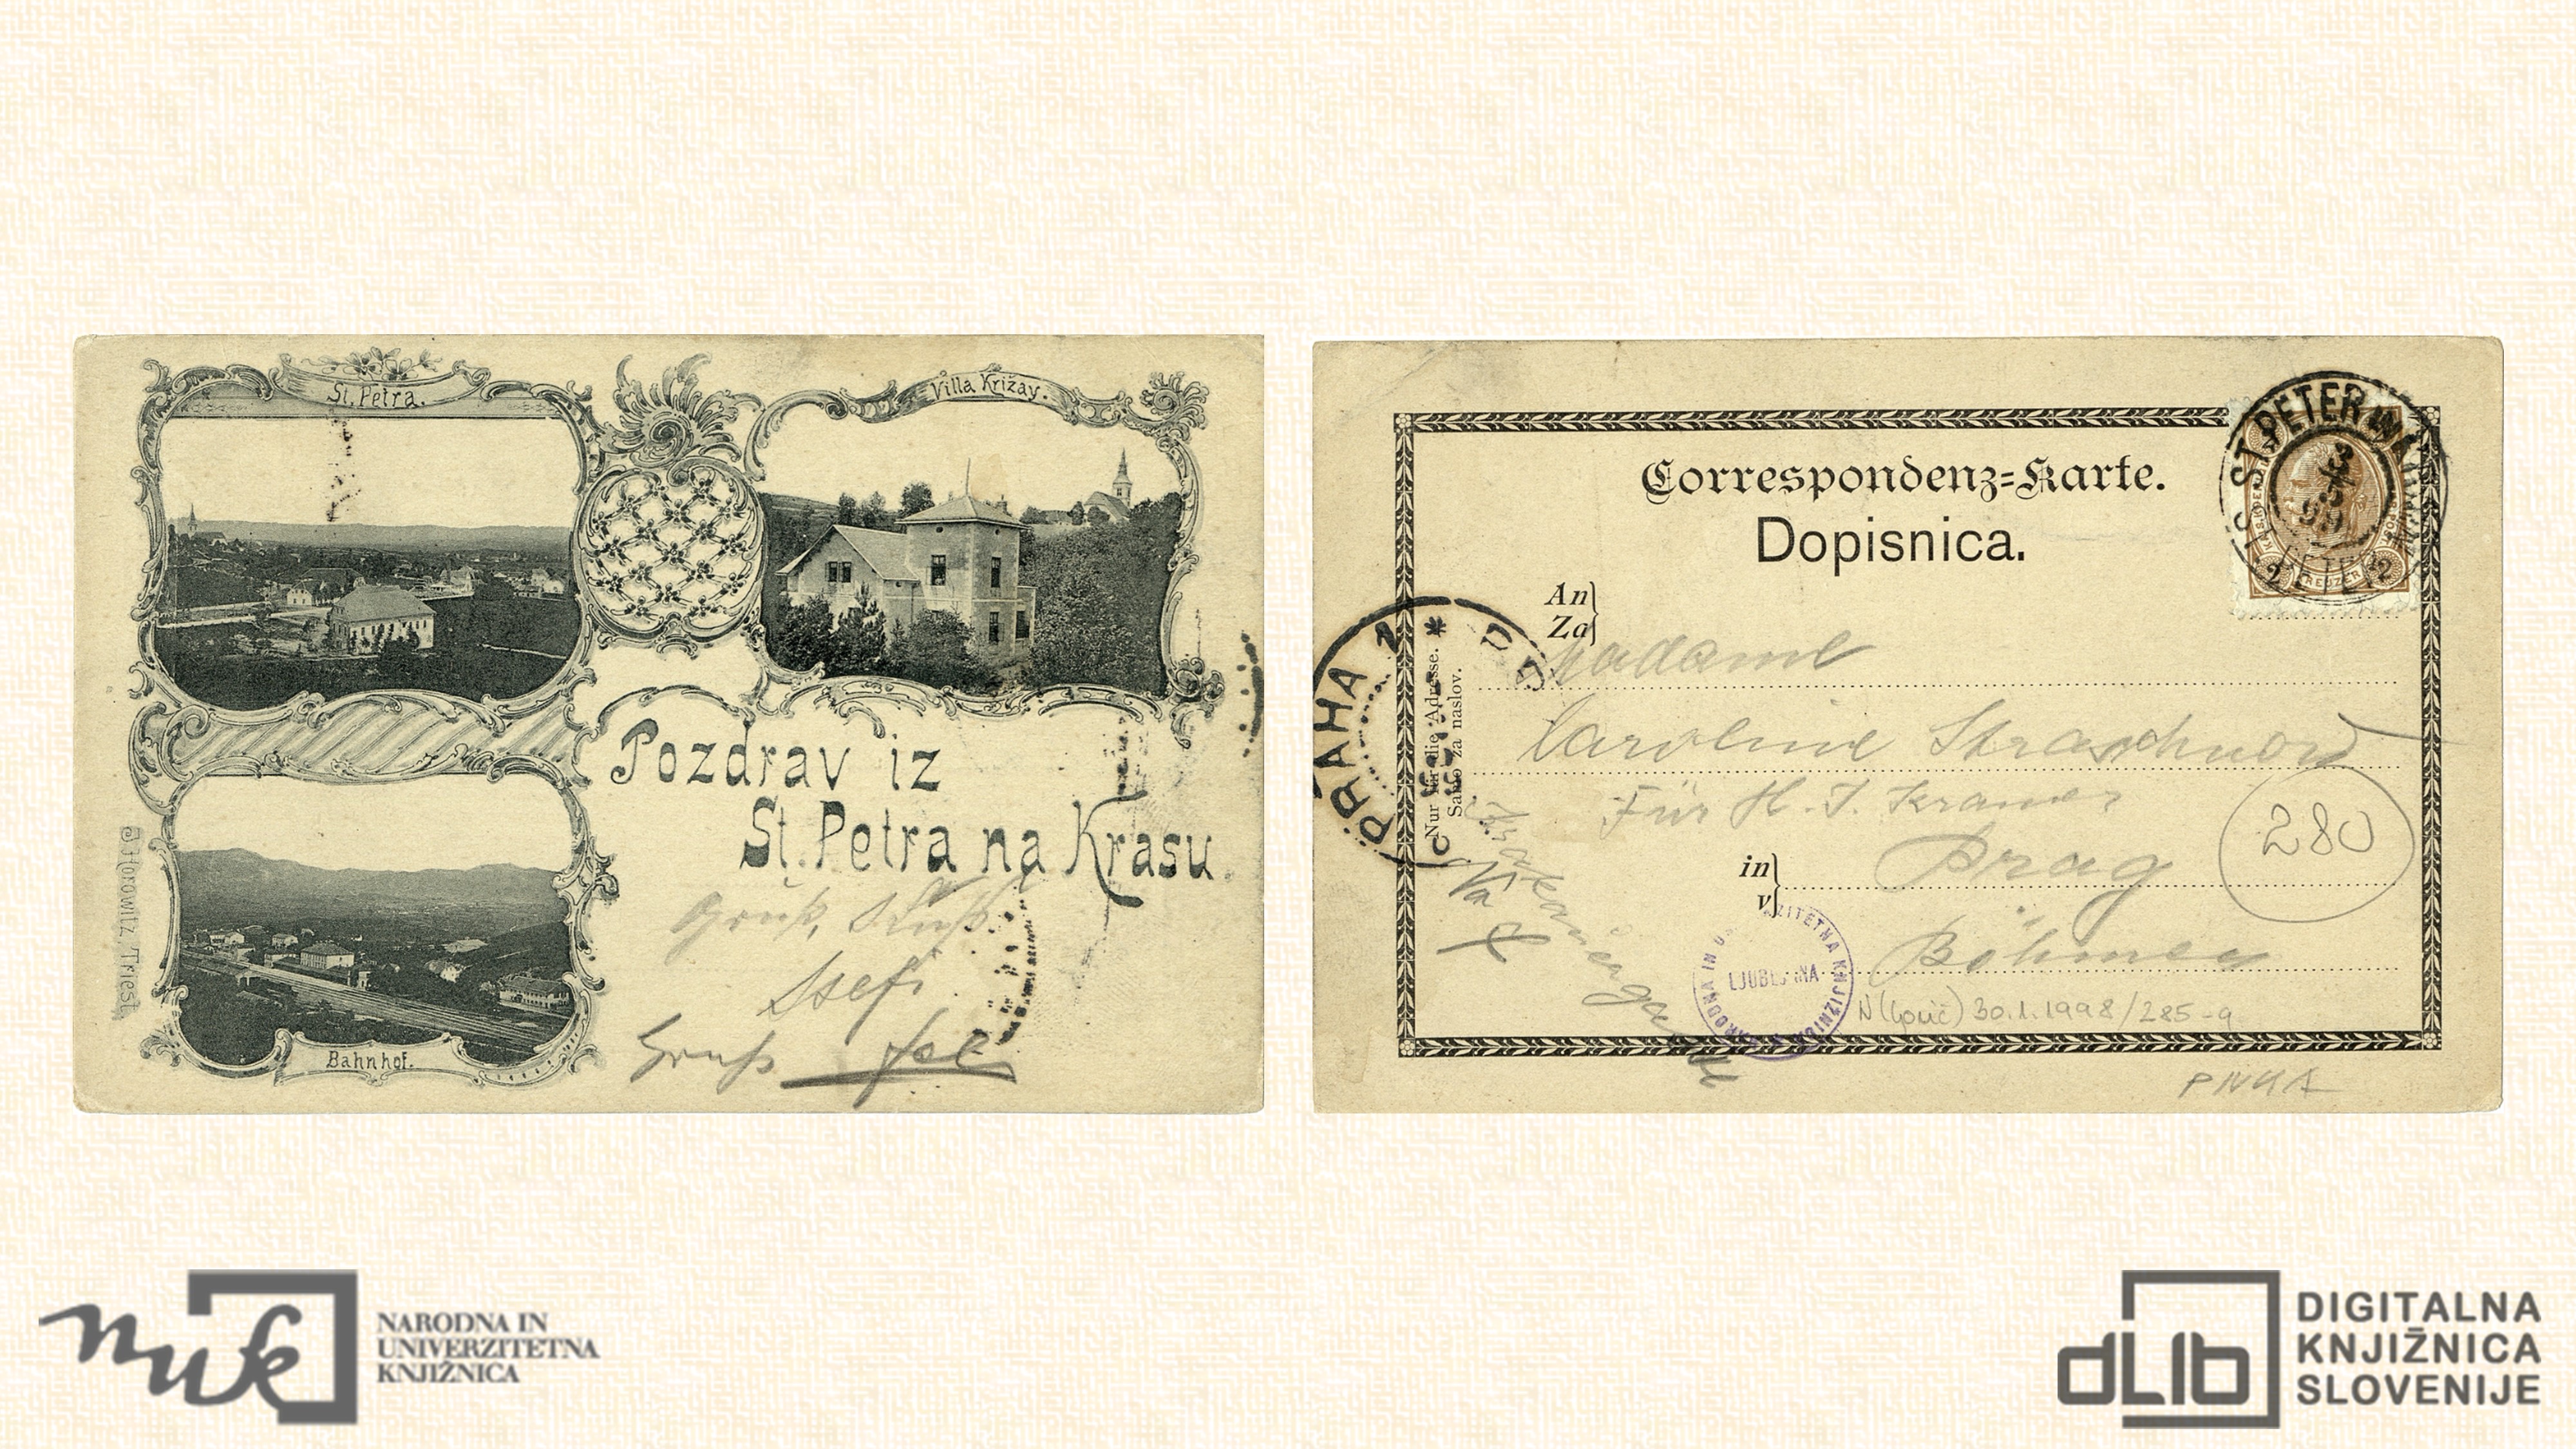 St. Petra.
Villa Križay.
Pozdrav iz
St. Petra na Krasu.
Gruß, Kuß
Gruß
Bahnhof.
Horowitz, Triest
Correspondenz-Karte.
Dopisnica.
An
Za
Madame
Caroline
Für H. J. Kramer
in
v
Prag
Böhmen
280
Nur für die Adresse.
Samo za naslov.
PRAHA 1
ST. PETER IN
KREUZER
LJUBLJANA
NARODNA IN UNIVERZITETNA KNJIŽNICA
30.1.1998/285-9
PIVKA
nuk
NARODNA IN
UNIVERZITETNA
KNJIŽNICA
dLib
DIGITALNA
KNJIŽNICA
SLOVENIJE